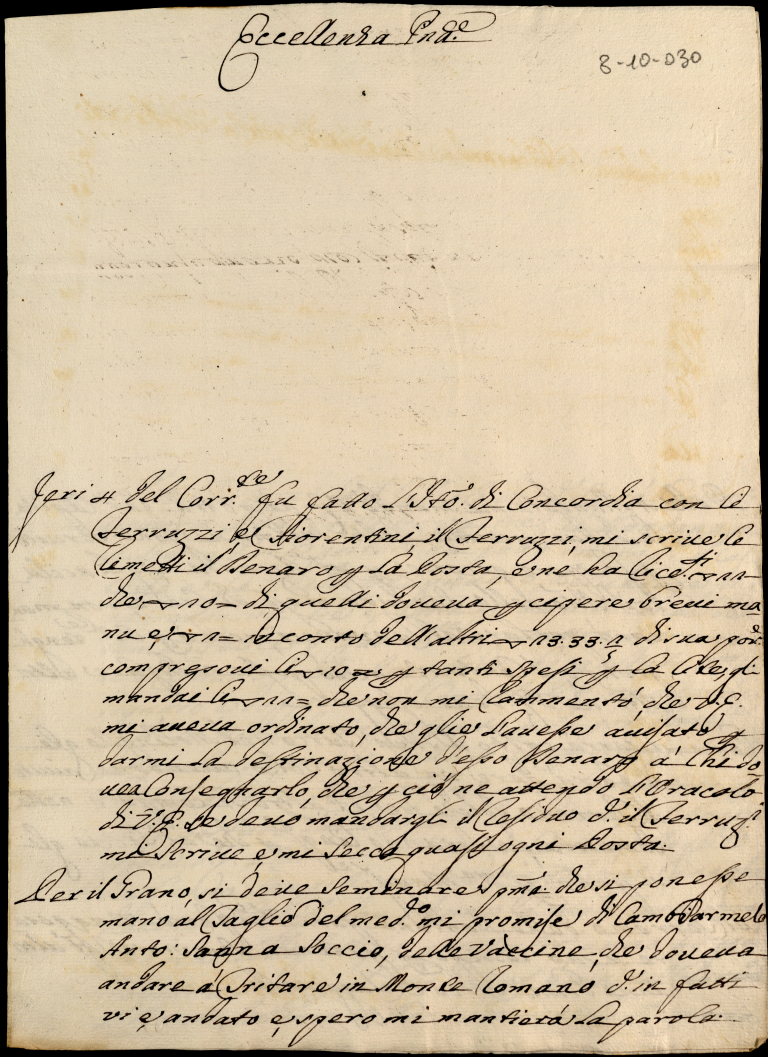 Eccellenza Pnd.e
8-10-030
Jeri 4 del Corr.te fu fatto L'Jto. di Concordia con li
Ferruzzi, e Fiorentini, il Ferruzzi, mi scrive le
rimetti il Denaro p La Posta, e ne ha lice.ti 11
che 10 = di quelli doveva pcipere brevi ma
nu e 1 = a conto dell'altri 13.33. 1/5 di sua por.e
compresovi li 10 = p tanti spesi p la lite, gli
mandai li 11 = che non mi rammentó, che V.E.
mi aveva ordinato, che glie L'avesse avisato p
darmi La destinazione d'esso Denaro á Chi do
vea Consegnarlo, che p ció ne attendo L'Oracolo
di V.E. se devo mandargli il residuo d. il Ferruz.i
mi Scrive e mi Secca quasi ogni Posta.
Per il Grano, si deve Seminare pma. che si ponesse
mano al Taglio del med.mo mi promise di Cambiarmelo
Anto: Sanna Soccio, delle Vaccine, che doveva
andare á Tritare in Monte Romano d. in fatti
vi e andato e spero mi mantierá La parola.